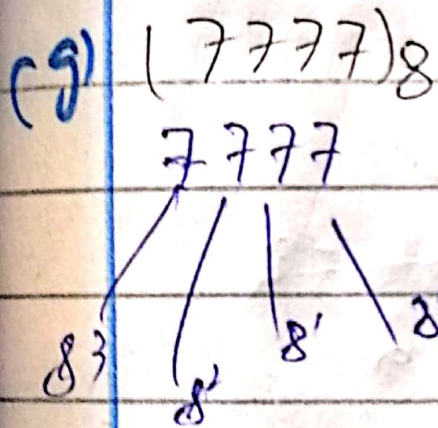 (g) (7777)8
7777
8³ 8² 8¹ 8